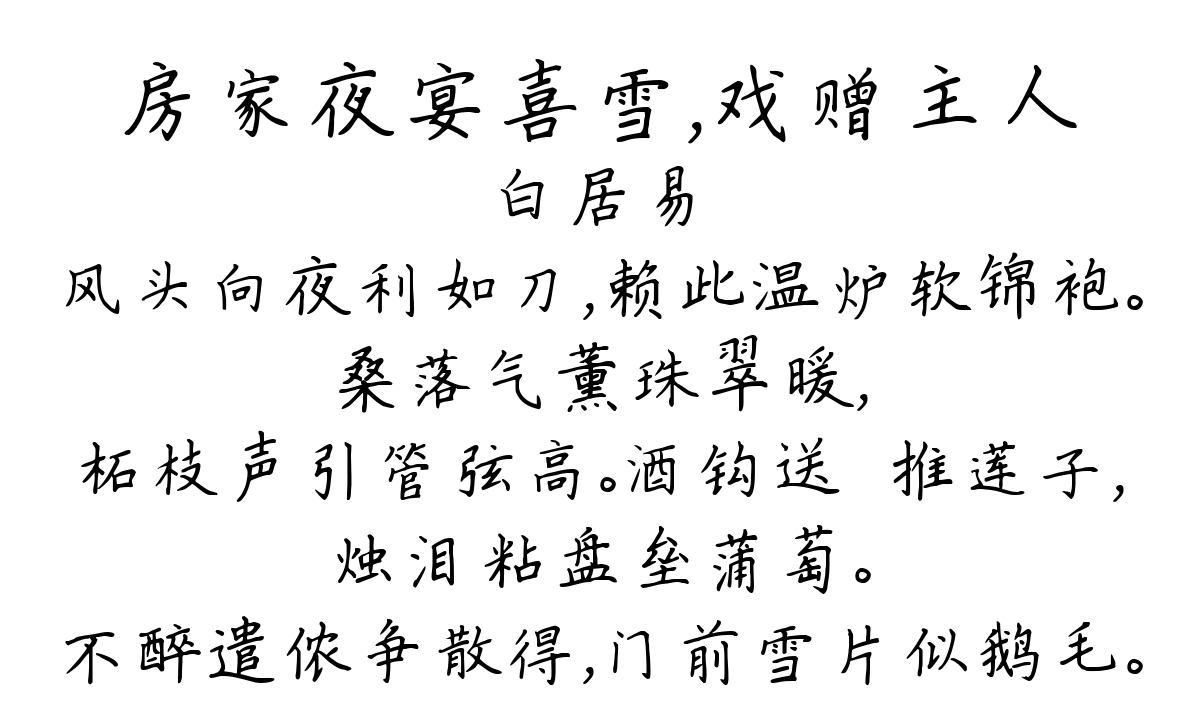 房家夜宴喜雪,戏赠主人
白居易
风头向夜利如刀,赖此温炉软锦袍。
桑落气薰珠翠暖,
柘枝声引管弦高。酒钩送 推莲子,
烛泪粘盘垒蒲萄。
不醉遣侬争散得,门前雪片似鹅毛。